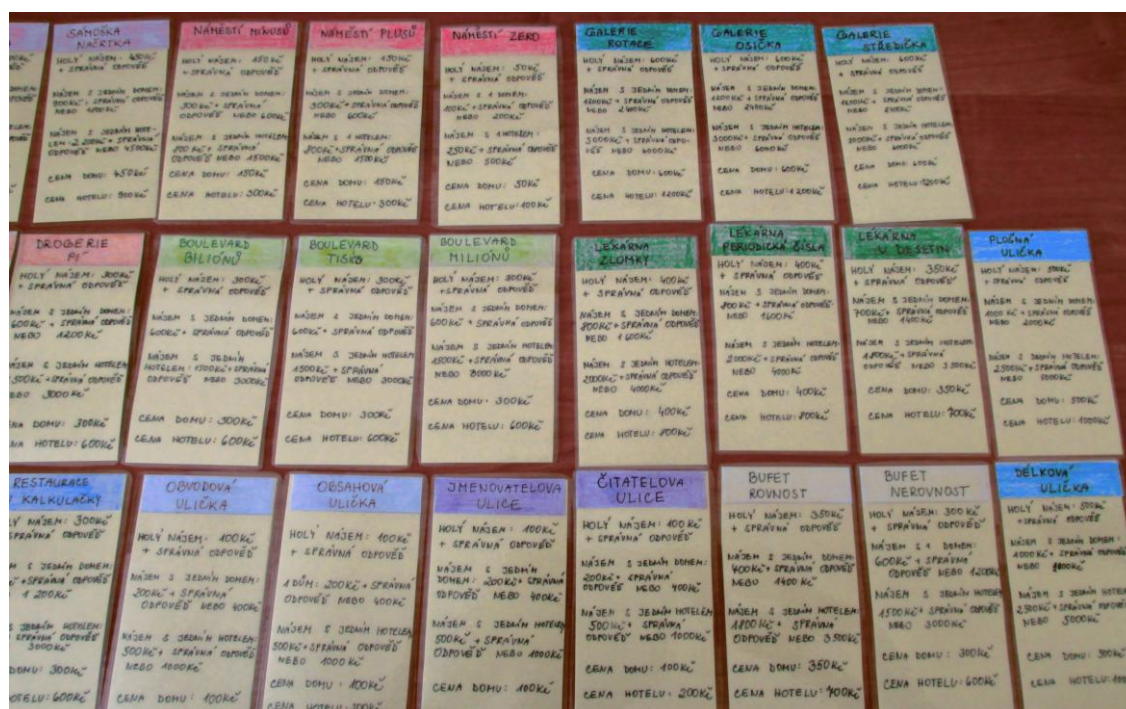 SAMOŠKA
NAČRTKA
HOLÝ NÁJEM: 450Kč
+ SPRÁVNÁ ODPOVĚĎ
NÁJEM S JEDNÍM DOMEM:
900Kč + SPRÁVNÁ ODPOVĚĎ
NEBO
NÁJEM S JEDNÍM HOTE-
LEM: 2 200Kč + SPRÁVNÁ
ODPOVĚĎ NEBO 4500Kč
CENA DOMU: 450Kč
CENA HOTELU: 900Kč
NÁMĚSTÍ MÍNUSŮ
HOLÝ NÁJEM: 150Kč
+ SPRÁVNÁ ODPOVĚĎ
NÁJEM S JEDNÍM DOMEM:
300Kč + SPRÁVNÁ
ODPOVĚĎ NEBO 600Kč
NÁJEM S JEDNÍM HOTELEM:
800 Kč + SPRÁVNÁ
ODPOVĚĎ NEBO 1500Kč
CENA DOMU: 150Kč
CENA HOTELU: 300Kč
NÁMĚSTÍ PLUSŮ
HOLÝ NÁJEM: 150Kč
+ SPRÁVNÁ ODPOVĚĎ
NÁJEM S JEDNÍM DOMEM:
300Kč + SPRÁVNÁ ODPOVĚĎ
NEBO 600Kč
NÁJEM S 1 HOTELEM:
800Kč + SPRÁVNÁ ODPOVĚĎ
NEBO 1500Kč
CENA DOMU: 150Kč
CENA HOTELU: 300Kč
NÁMĚSTÍ ZERO
HOLÝ NÁJEM: 50Kč
+ SPRÁVNÁ ODPOVĚĎ
NÁJEM S 1 DOMEM:
100Kč + SPRÁVNÁ ODPOVĚĎ
NEBO 200Kč
NÁJEM S 1 HOTELEM:
250Kč + SPRÁVNÁ ODPOVĚĎ
NEBO 500Kč
CENA DOMU: 50Kč
CENA HOTELU: 100Kč
GALERIE
ROTACE
HOLÝ NÁJEM: 600Kč
+ SPRÁVNÁ ODPOVĚĎ
NÁJEM S JEDNÍM DOMEM:
1200Kč + SPRÁVNÁ ODPOVĚĎ
NEBO 2400Kč
NÁJEM S JEDNÍM HOTELEM:
3000Kč + SPRÁVNÁ ODPO-
VĚĎ NEBO 6000Kč
CENA DOMU: 600Kč
CENA HOTELU: 1200Kč
GALERIE
OSIČKA
HOLÝ NÁJEM: 600Kč
+ SPRÁVNÁ ODPOVĚĎ
NÁJEM S JEDNÍM DOMEM:
1200Kč + SPRÁVNÁ ODPOVĚĎ
NEBO 2400Kč
NÁJEM S JEDNÍM HOTELEM:
3000Kč + SPRÁVNÁ ODPOVĚĎ
NEBO 6000Kč
CENA DOMU: 600Kč
CENA HOTELU: 1200Kč
GALERIE
STŘEDIČKA
HOLÝ NÁJEM: 600Kč
+ SPRÁVNÁ ODPOVĚĎ
NÁJEM S JEDNÍM DOMEM:
1200Kč + SPRÁVNÁ ODPOVĚĎ
NEBO 2400Kč
NÁJEM S JEDNÍM HOTELEM:
3000Kč + SPRÁVNÁ ODPOVĚĎ
NEBO 6000Kč
CENA DOMU: 600Kč
CENA HOTELU: 1200Kč
DROGERIE
PÍ
HOLÝ NÁJEM: 300Kč
+ SPRÁVNÁ ODPOVĚĎ
NÁJEM S JEDNÍM DOMEM:
600Kč + SPRÁVNÁ ODPOVĚĎ
NEBO 1200Kč
S JEDNÍM HOTELEM:
+ SPRÁVNÁ ODPOVĚĎ
3000Kč
DOMU: 300Kč
HOTELU: 600Kč
BOULEVARD
BILIONŮ
HOLÝ NÁJEM: 300Kč
+ SPRÁVNÁ ODPOVĚĎ
NÁJEM S JEDNÍM DOMEM:
600Kč + SPRÁVNÁ ODPOVĚĎ
NÁJEM S JEDNÍM
HOTELEM: 1500Kč + SPRÁVNÁ
ODPOVĚĎ NEBO 3000Kč
CENA DOMU: 300Kč
CENA HOTELU: 600Kč
BOULEVARD
TISKŮ
HOLÝ NÁJEM: 300Kč
+ SPRÁVNÁ ODPOVĚĎ
NÁJEM S JEDNÍM DOMEM:
600Kč + SPRÁVNÁ ODPOVĚĎ
NÁJEM S JEDNÍM HOTELEM
1500Kč + SPRÁVNÁ
ODPOVĚĎ NEBO 3000Kč
CENA DOMU: 300Kč
CENA HOTELU: 600Kč
BOULEVARD
MILIONŮ
HOLÝ NÁJEM: 300Kč
+ SPRÁVNÁ ODPOVĚĎ
NÁJEM S JEDNÍM DOMEM:
600Kč + SPRÁVNÁ ODPOVĚĎ
NÁJEM S JEDNÍM HOTELEM:
1500Kč + SPRÁVNÁ ODPOVĚĎ
NEBO 3000Kč
CENA DOMU: 300Kč
CENA HOTELU: 600Kč
LEKÁRNA
ZLOMKY
HOLÝ NÁJEM: 400Kč
+ SPRÁVNÁ ODPOVĚĎ
NÁJEM S JEDNÍM DOMEM:
800Kč + SPRÁVNÁ ODPOVĚĎ
NEBO 1600Kč
NÁJEM S JEDNÍM HOTELEM
2000Kč + SPRÁVNÁ ODPOVĚĎ
NEBO 4000Kč
CENA DOMU: 400Kč
CENA HOTELU: 800Kč
LEKÁRNA
PERIODICKÁ ČÍSLA
HOLÝ NÁJEM: 400Kč
+ SPRÁVNÁ ODPOVĚĎ
NÁJEM S JEDNÍM DOMEM:
800Kč + SPRÁVNÁ ODPOVĚĎ
NEBO 1600Kč
NÁJEM S JEDNÍM HOTELEM
2000Kč + SPRÁVNÁ ODPOVĚĎ
NEBO 4000Kč
CENA DOMU: 400Kč
CENA HOTELU: 800Kč
LEKÁRNA
U DESETIN
HOLÝ NÁJEM: 350Kč
+ SPRÁVNÁ ODPOVĚĎ
NÁJEM S JEDNÍM DOMEM:
700Kč + SPRÁVNÁ ODPOVĚĎ
NEBO 1400Kč
NÁJEM S JEDNÍM HOTELEM
1800Kč + SPRÁVNÁ
ODPOVĚĎ NEBO 3500Kč
CENA DOMU: 350Kč
CENA HOTELU: 700Kč
PLOŠNÁ
ULIČKA
HOLÝ NÁJEM: 500Kč
+ SPRÁVNÁ ODPOVĚĎ
NÁJEM S JEDNÍM DOMEM:
1000 Kč + SPRÁVNÁ ODPOVĚĎ
NEBO 2000Kč
NÁJEM S JEDNÍM HOTELEM:
2500Kč + SPRÁVNÁ ODPOVĚĎ
NEBO 5000Kč
CENA DOMU: 500Kč
CENA HOTELU: 1000Kč
RESTAURACE
KALKULAČKY
NÁJEM: 300Kč
SPRÁVNÁ ODPOVĚĎ
S JEDNÍM DOMEM:
+ SPRÁVNÁ ODPOVĚĎ
1 200Kč
S JEDNÍM HOTELEM:
SPRÁVNÁ ODPOVĚĎ
3000Kč
DOMU: 300Kč
HOTELU: 600Kč
OBVODOVÁ
ULIČKA
HOLÝ NÁJEM: 100Kč
+ SPRÁVNÁ ODPOVĚĎ
NÁJEM S JEDNÍM DOMEM:
200Kč + SPRÁVNÁ
ODPOVĚĎ NEBO 400Kč
NÁJEM S JEDNÍM HOTELEM:
500Kč + SPRÁVNÁ ODPOVĚĎ
NEBO 1000Kč
CENA DOMU: 100Kč
OBSAHOVÁ
ULIČKA
HOLÝ NÁJEM: 100Kč
+ SPRÁVNÁ ODPOVĚĎ
1 DŮM: 200Kč + SPRÁVNÁ
ODPOVĚĎ NEBO 400Kč
NÁJEM S JEDNÍM HOTELEM
500Kč + SPRÁVNÁ ODPOVĚĎ
NEBO 1000Kč
CENA DOMU: 100Kč
CENA HOTELU: 200Kč
JMENOVATELOVA
ULICE
HOLÝ NÁJEM: 100Kč
+ SPRÁVNÁ ODPOVĚĎ
NÁJEM S JEDNÍM
DOMEM: 200Kč + SPRÁVNÁ
ODPOVĚĎ NEBO 400Kč
NÁJEM S JEDNÍM HOTELEM
500Kč + SPRÁVNÁ
ODPOVĚĎ NEBO 1000Kč
CENA DOMU: 100Kč
ČITATELOVA
ULICE
HOLÝ NÁJEM: 100Kč
+ SPRÁVNÁ ODPOVĚĎ
NÁJEM S JEDNÍM DOMEM:
200Kč + SPRÁVNÁ
ODPOVĚĎ NEBO 400Kč
NÁJEM S JEDNÍM HOTELEM
500Kč + SPRÁVNÁ
ODPOVĚĎ NEBO 1000Kč
CENA DOMU: 100Kč
CENA HOTELU: 200Kč
BUFET
ROVNOST
HOLÝ NÁJEM: 350Kč
+ SPRÁVNÁ ODPOVĚĎ
NÁJEM S JEDNÍM DOMEM:
400Kč + SPRÁVNÁ ODPOVĚĎ
NEBO 1400Kč
NÁJEM S JEDNÍM HOTELEM
1800Kč + SPRÁVNÁ
ODPOVĚĎ NEBO 3500Kč
CENA DOMU: 350Kč
CENA HOTELU: 700Kč
BUFET
NEROVNOST
HOLÝ NÁJEM: 300Kč
+ SPRÁVNÁ ODPOVĚĎ
NÁJEM S 1 DOMEM:
600Kč + SPRÁVNÁ
ODPOVĚĎ NEBO 1200Kč
NÁJEM S JEDNÍM HOTELEM
1500Kč + SPRÁVNÁ ODPOVĚĎ
NEBO 3000Kč
CENA DOMU: 300Kč
CENA HOTELU: 600Kč
DÉLKOVÁ
ULIČKA
HOLÝ NÁJEM: 500Kč
+ SPRÁVNÁ ODPOVĚĎ
NÁJEM S JEDNÍM DOMEM:
1000Kč + SPRÁVNÁ ODPOVĚĎ
NEBO
NÁJEM S JEDNÍM HOTELEM
2500Kč + SPRÁVNÁ ODPOVĚĎ
NEBO 5000Kč
CENA DOMU: 500Kč
CENA HOTELU: